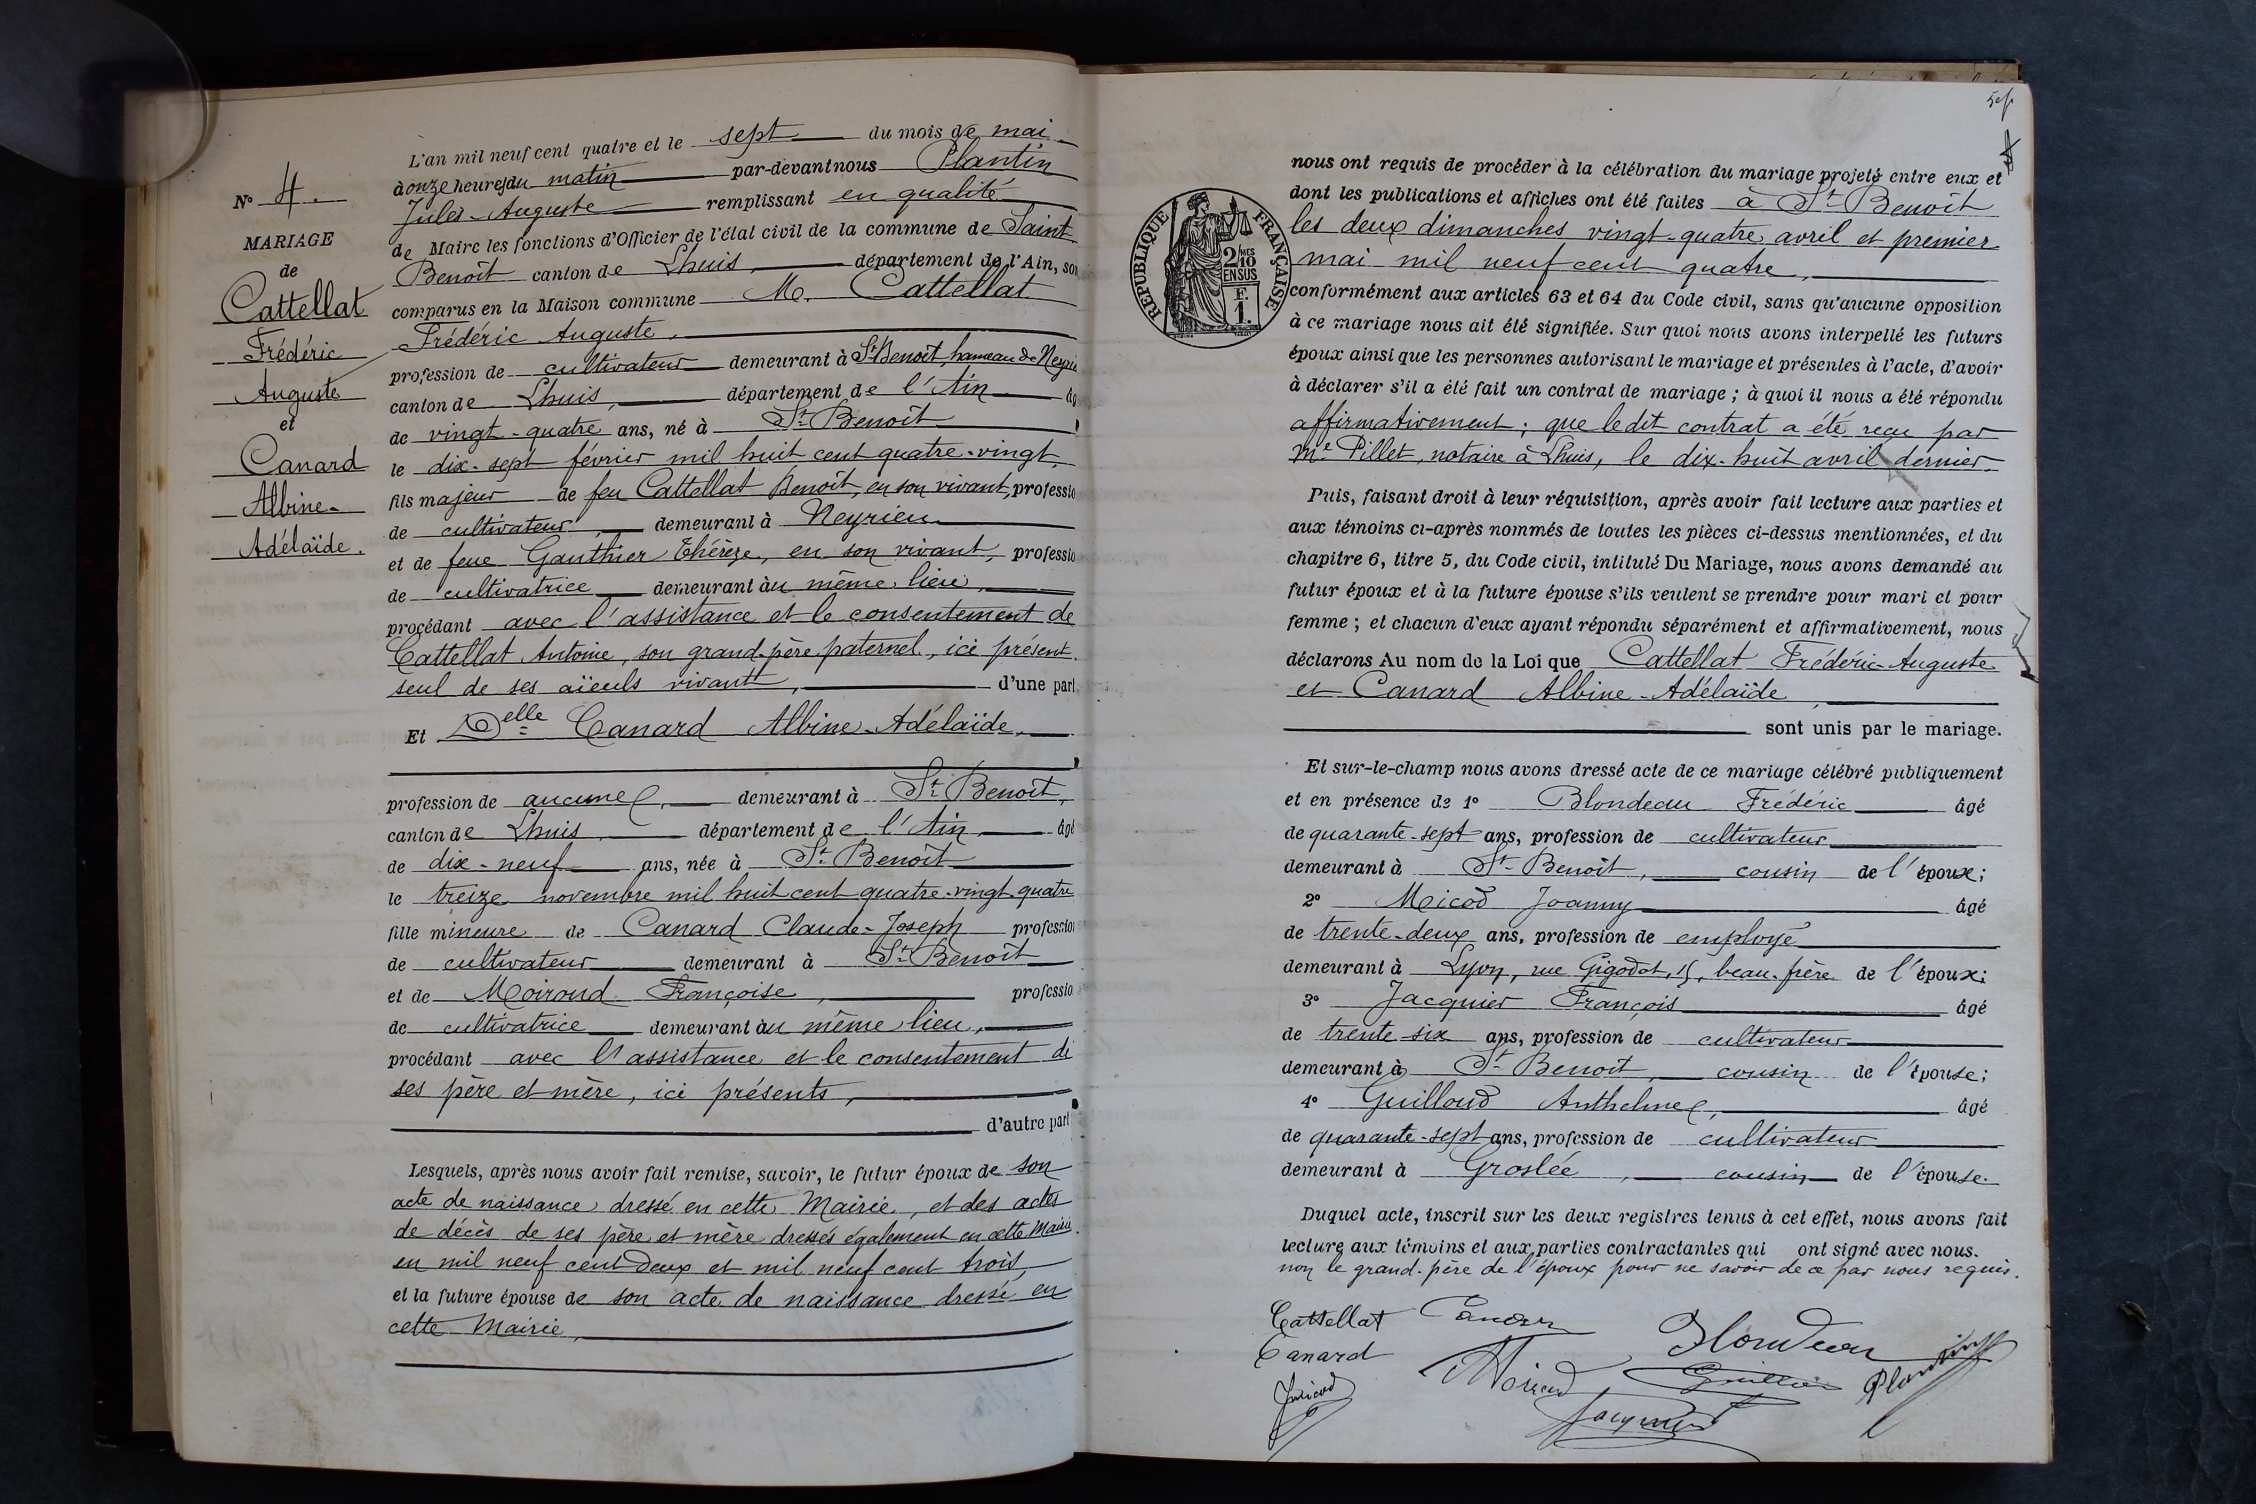 N° 4.
MARIAGE
de
Cattellat
Frédéric
Auguste
et
Canard
Albine-
Adélaïde.
L'an mil neuf cent quatre et le sept du mois de mai
à onze heures du matin par-devant nous Plantin
Jules-Auguste remplissant en qualité
de Maire les fonctions d'Officier de l'état civil de la commune de Saint
Benoît canton de Lhuis, département de l'Ain, son
comparus en la Maison commune M. Cattellat
Frédéric Auguste,
profession de cultivateur demeurant à St Benoît, hameau de Neyrieu
canton de Lhuis, département de l'Ain âg
de vingt-quatre ans, né à St Benoît
le dix-sept février mil huit cent quatre-vingt,
fils majeur de feu Cattellat Benoît, en son vivant, professio
de cultivateur, demeurant à Neyrieu
et de feue Gauthier Thérèze, en son vivant, professio
de cultivatrice demeurant au même lieu,
procédant avec l'assistance et le consentement de
Cattellat Antoine, son grand-père paternel, ici présent,
seul de ses aïeuls vivant, d'une part
Et Delle Canard Albine-Adélaïde,
profession de aucune, demeurant à St Benoît,
canton de Lhuis, département de l'Ain âgé
de dix-neuf ans, née à St Benoît
le treize novembre mil huit cent quatre-vingt-quatre
fille mineure de Canard Claude-Joseph profession
de cultivateur demeurant à St Benoît
et de Moiroud Françoise, professio
de cultivatrice demeurant au même lieu,
procédant avec l'assistance et le consentement de
ses père et mère, ici présents,
d'autre part
Lesquels, après nous avoir fait remise, savoir, le futur époux de son
acte de naissance dressé en cette Mairie, et des actes
de décès de ses père et mère dressés également en cette Mairie
en mil neuf cent deux et mil neuf cent trois,
et la future épouse de son acte de naissance dressé en
cette Mairie,
RÉPUBLIQUE FRANÇAISE
2/10 MES
EN SUS
F.
1.
nous ont requis de procéder à la célébration du mariage projeté entre eux et
dont les publications et affiches ont été faites à St Benoît
les deux dimanches vingt-quatre avril et premier
mai mil neuf cent quatre,
conformément aux articles 63 et 64 du Code civil, sans qu'aucune opposition
à ce mariage nous ait été signifiée. Sur quoi nous avons interpellé les futurs
époux ainsi que les personnes autorisant le mariage et présentes à l'acte, d'avoir
à déclarer s'il a été fait un contrat de mariage ; à quoi il nous a été répondu
affirmativement ; que ledit contrat a été reçu par
Me Pillet, notaire à Lhuis, le dix-huit avril dernier.
Puis, faisant droit à leur réquisition, après avoir fait lecture aux parties et
aux témoins ci-après nommés de toutes les pièces ci-dessus mentionnées, et du
chapitre 6, titre 5, du Code civil, intitulé Du Mariage, nous avons demandé au
futur époux et à la future épouse s'ils veulent se prendre pour mari et pour
femme ; et chacun d'eux ayant répondu séparément et affirmativement, nous
déclarons Au nom de la Loi que Cattellat Frédéric-Auguste
et Canard Albine-Adélaïde,
sont unis par le mariage.
Et sur-le-champ nous avons dressé acte de ce mariage célébré publiquement
et en présence de 1° Blondeau Frédéric âgé
de quarante-sept ans, profession de cultivateur
demeurant à St-Benoît, cousin de l'époux;
2° Micod Joanny âgé
de trente-deux ans, profession de employé
demeurant à Lyon, rue Gigodot, 15, beau-frère de l'époux;
3° Jacquier François âgé
de trente-six ans, profession de cultivateur
demeurant à St-Benoît, cousin de l'épouse;
4° Guilloud Anthelme, âgé
de quarante-sept ans, profession de cultivateur
demeurant à Groslée, cousin de l'épouse.
Duquel acte, inscrit sur les deux registres tenus à cet effet, nous avons fait
lecture aux témoins et aux parties contractantes qui ont signé avec nous.
non le grand-père de l'époux pour ne savoir de ce par nous requis.
Cattellat Canard Blondeau
Canard Moiroud Guilloud Plantin
Micod Jacquier